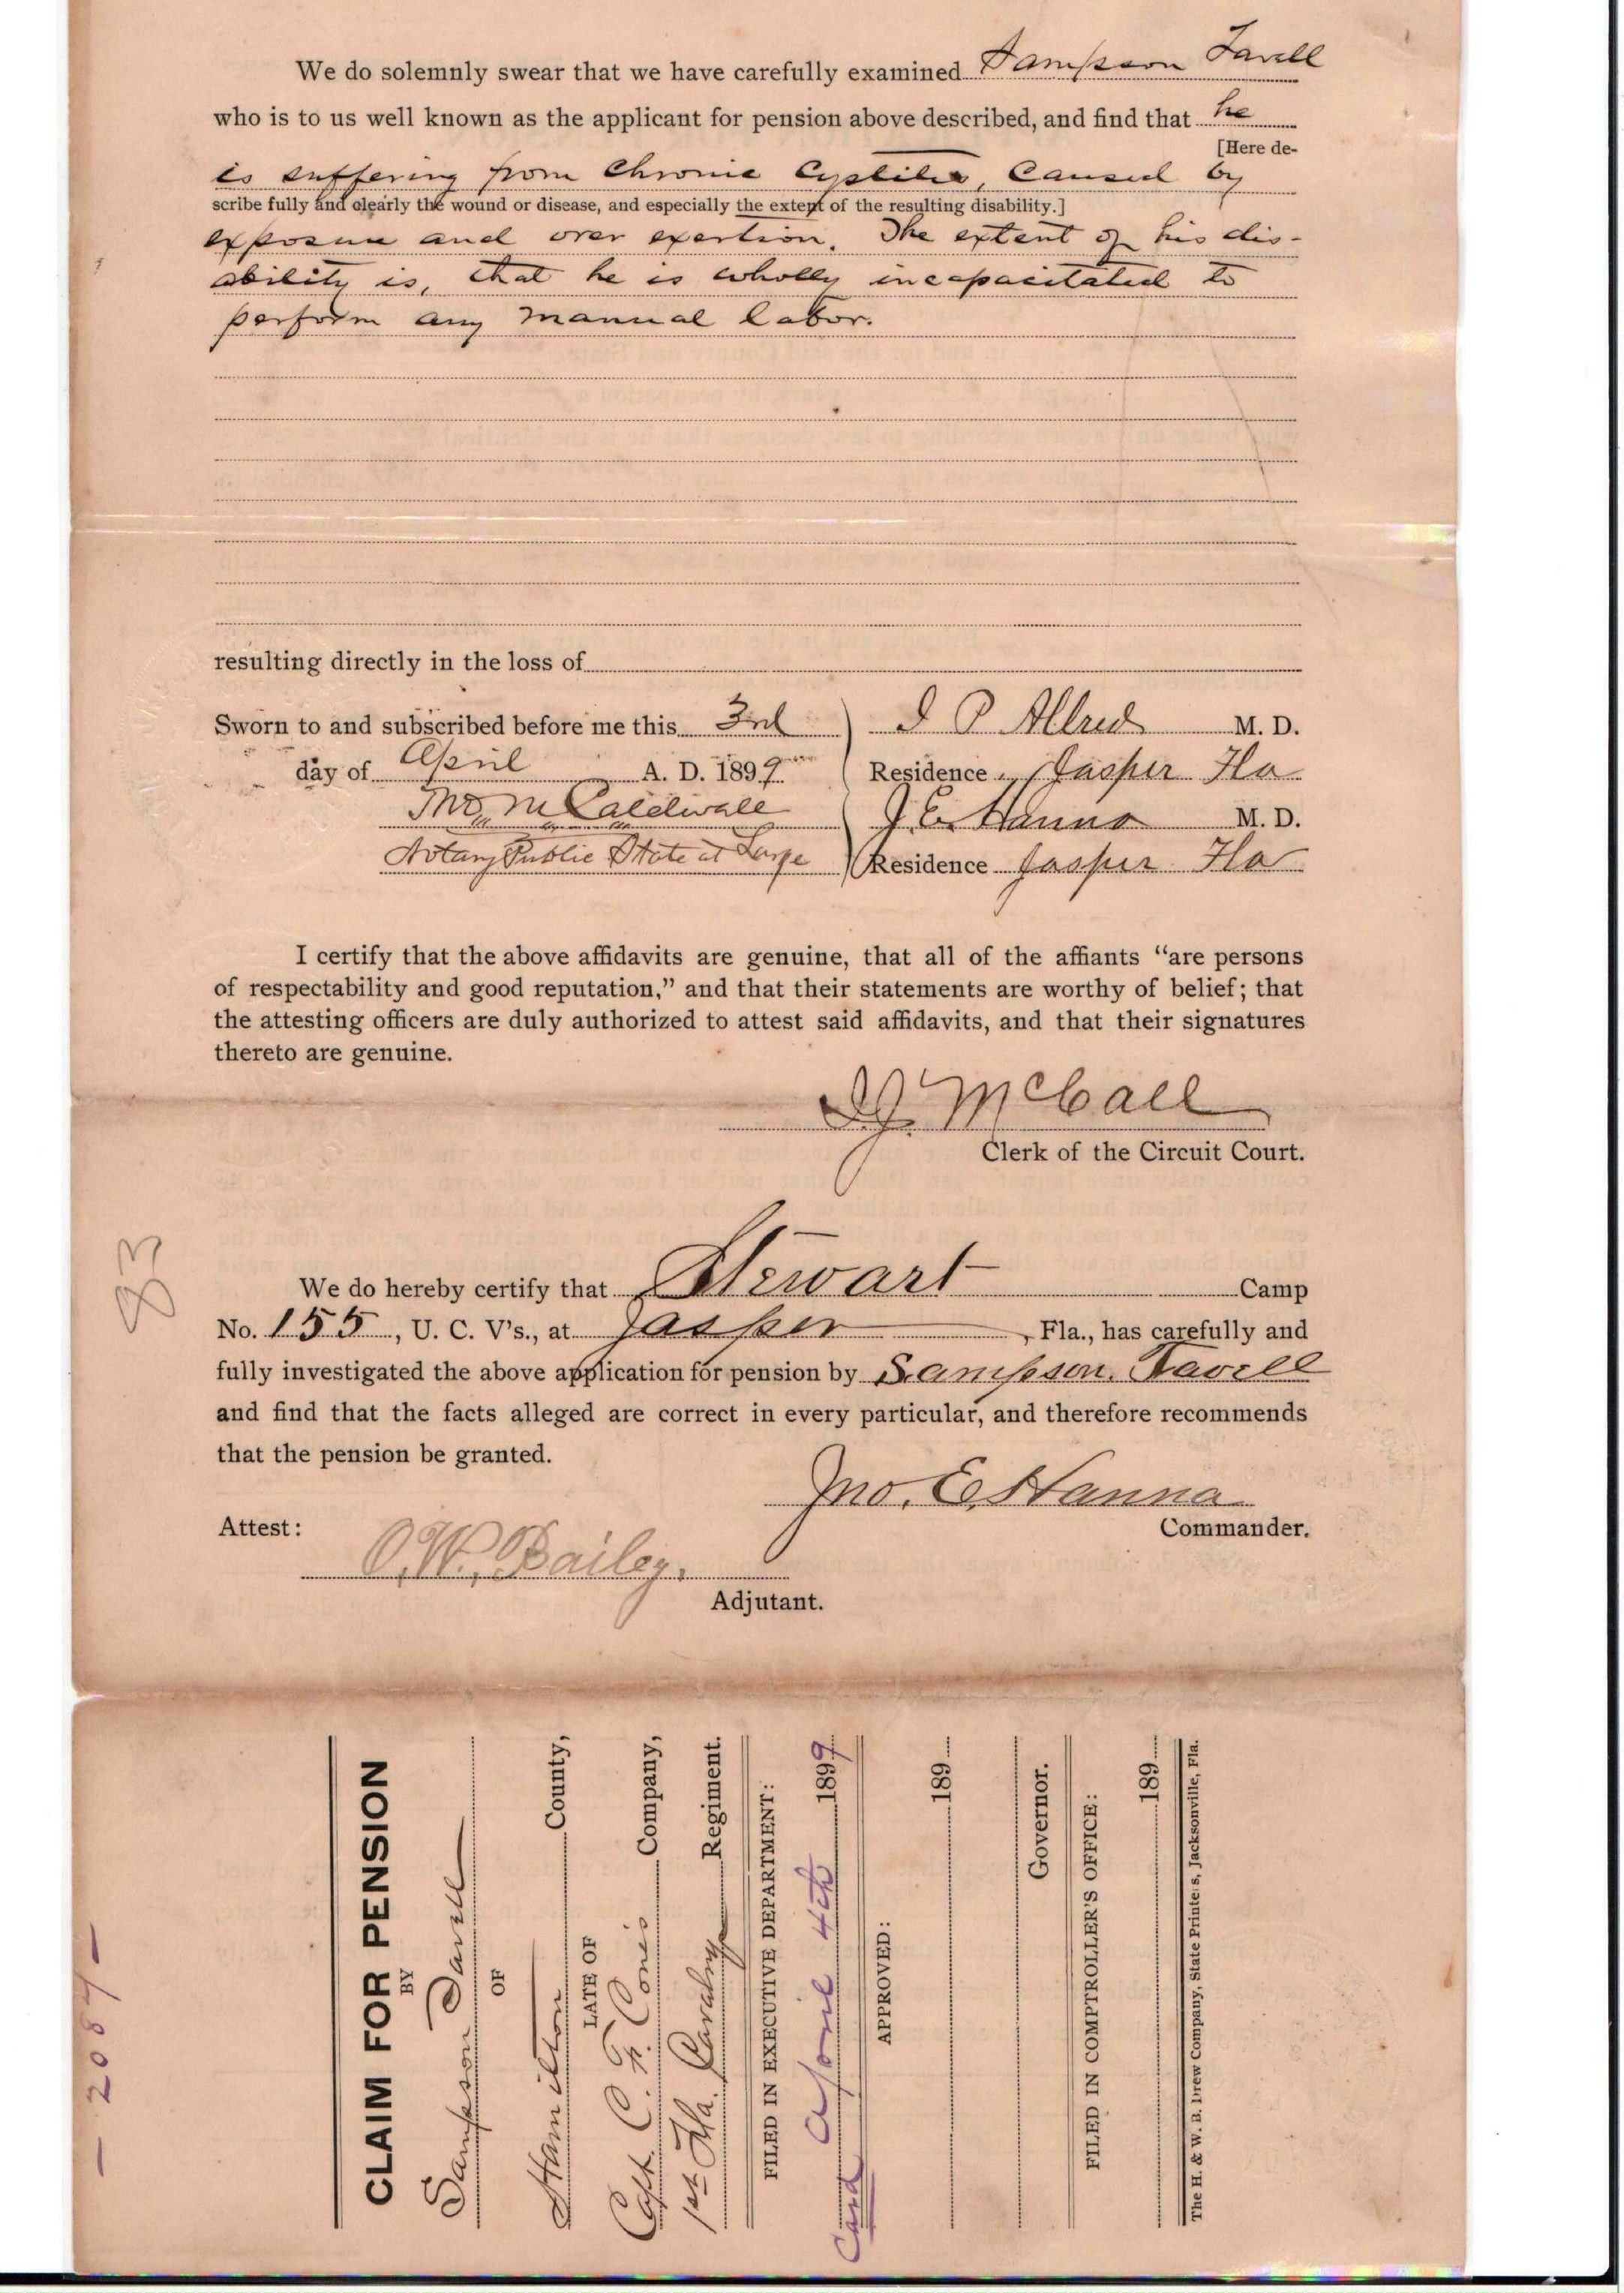 We do solemnly swear that we have carefully examined Sampson Tavell
who is to us well known as the applicant for pension above described, and find that he
[Here de-
is suffering from Chronic Cystitis, Caused by
scribe fully and clearly the wound or disease, and especially the extent of the resulting disability.]
exposure and over exertion. The extent of his dis-
ability is, that he is wholly incapacitated to
perform any manual labor.
resulting directly in the loss of
Sworn to and subscribed before me this 3rd
I P Allred M. D.
day of April A. D. 1899
Residence Jasper Fla
Tho, M Caldwall
J. E. Hanna M. D.
Notary Public State at Large
Residence Jasper Fla
I certify that the above affidavits are genuine, that all of the affiants "are persons
of respectability and good reputation," and that their statements are worthy of belief; that
the attesting officers are duly authorized to attest said affidavits, and that their signatures
thereto are genuine.
McCall
Clerk of the Circuit Court.
83
We do hereby certify that Stewart Camp
No. 155, U. C. V's., at Jasper, Fla., has carefully and
fully investigated the above application for pension by Sampson. Tavell
and find that the facts alleged are correct in every particular, and therefore recommends
that the pension be granted.
Jno. E. Hanna
Commander.
Attest:
O. W. Bailey.
Adjutant.
- 2087 -
CLAIM FOR PENSION
BY
Sampson Tavell
OF
Hamilton County,
LATE OF
Capt. C. F. Cone's Company,
1st Fla. Cavalry Regiment.
FILED IN EXECUTIVE DEPARTMENT:
April 4th 1899
Card
APPROVED:
189
Governor.
FILED IN COMPTROLLER'S OFFICE:
189
The H. & W. B. Drew Company, State Printers, Jacksonville, Fla.